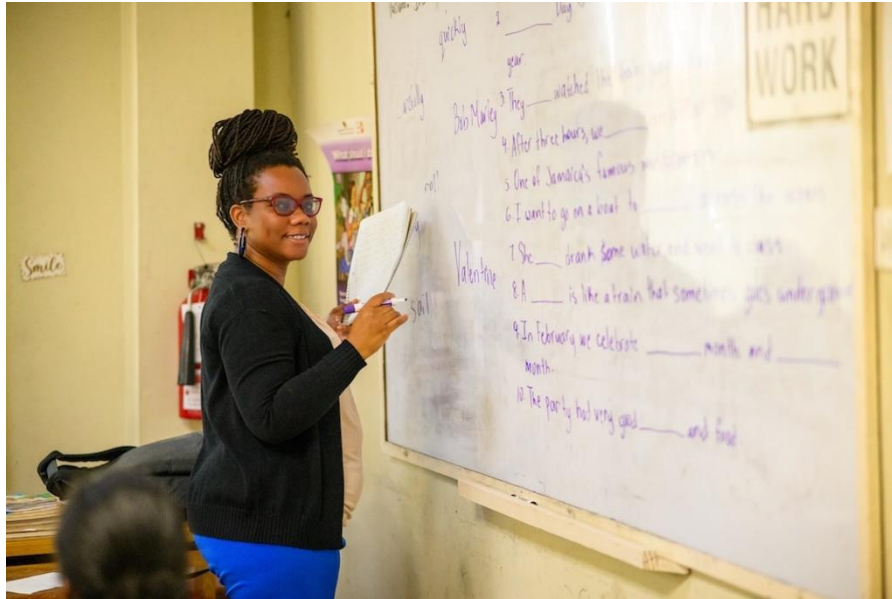 Smile
quickly
usually
Bob Marley
roll
Valentine
sail
2. ____
year
3. They ____ watched the
4. After three hours, we ____
5. One of Jamaica's famous
6. I want to go on a boat to ____ the ocean
7. She ____ drank some water and went to class
8. A ____ is like a train that sometimes goes underground
9. In February, we celebrate ____ month and ____
month.
10. The party had very good ____ and food
HARD
WORK